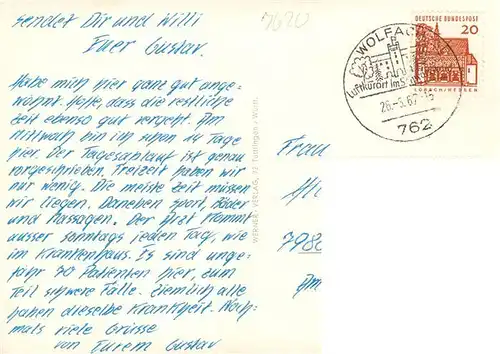 sendet Dir und Willi
Euer Gustav.
Habe mich hier ganz gut einge-
wöhnt. Hoffe, dass die restliche
Zeit ebenso gut vergeht. Am
Mittwoch bin ich schon 14 Tage
hier. Der Tagesablauf ist genau
vorgeschrieben. Freizeit haben wir
nur wenig. Die meiste Zeit müssen
wir liegen. Daneben Sport, Bäder
und Massagen. Der Arzt kommt
ausser sonntags jeden Tag, wie
im Krankenhaus. Es sind unge-
fähr 70 Patienten hier, zum
Teil schwere Fälle. Ziemlich alle
haben dieselbe Krankheit. Noch-
mals viele Grüsse
von Eurem Gustav
7620
WERNER-VERLAG, 72 Tuttlingen - Württ.
WOLFACH
Luftkurort im
26.-3.67-
762
DEUTSCHE BUNDESPOST
20
LORSCH/HESSEN
Frau
798
Am